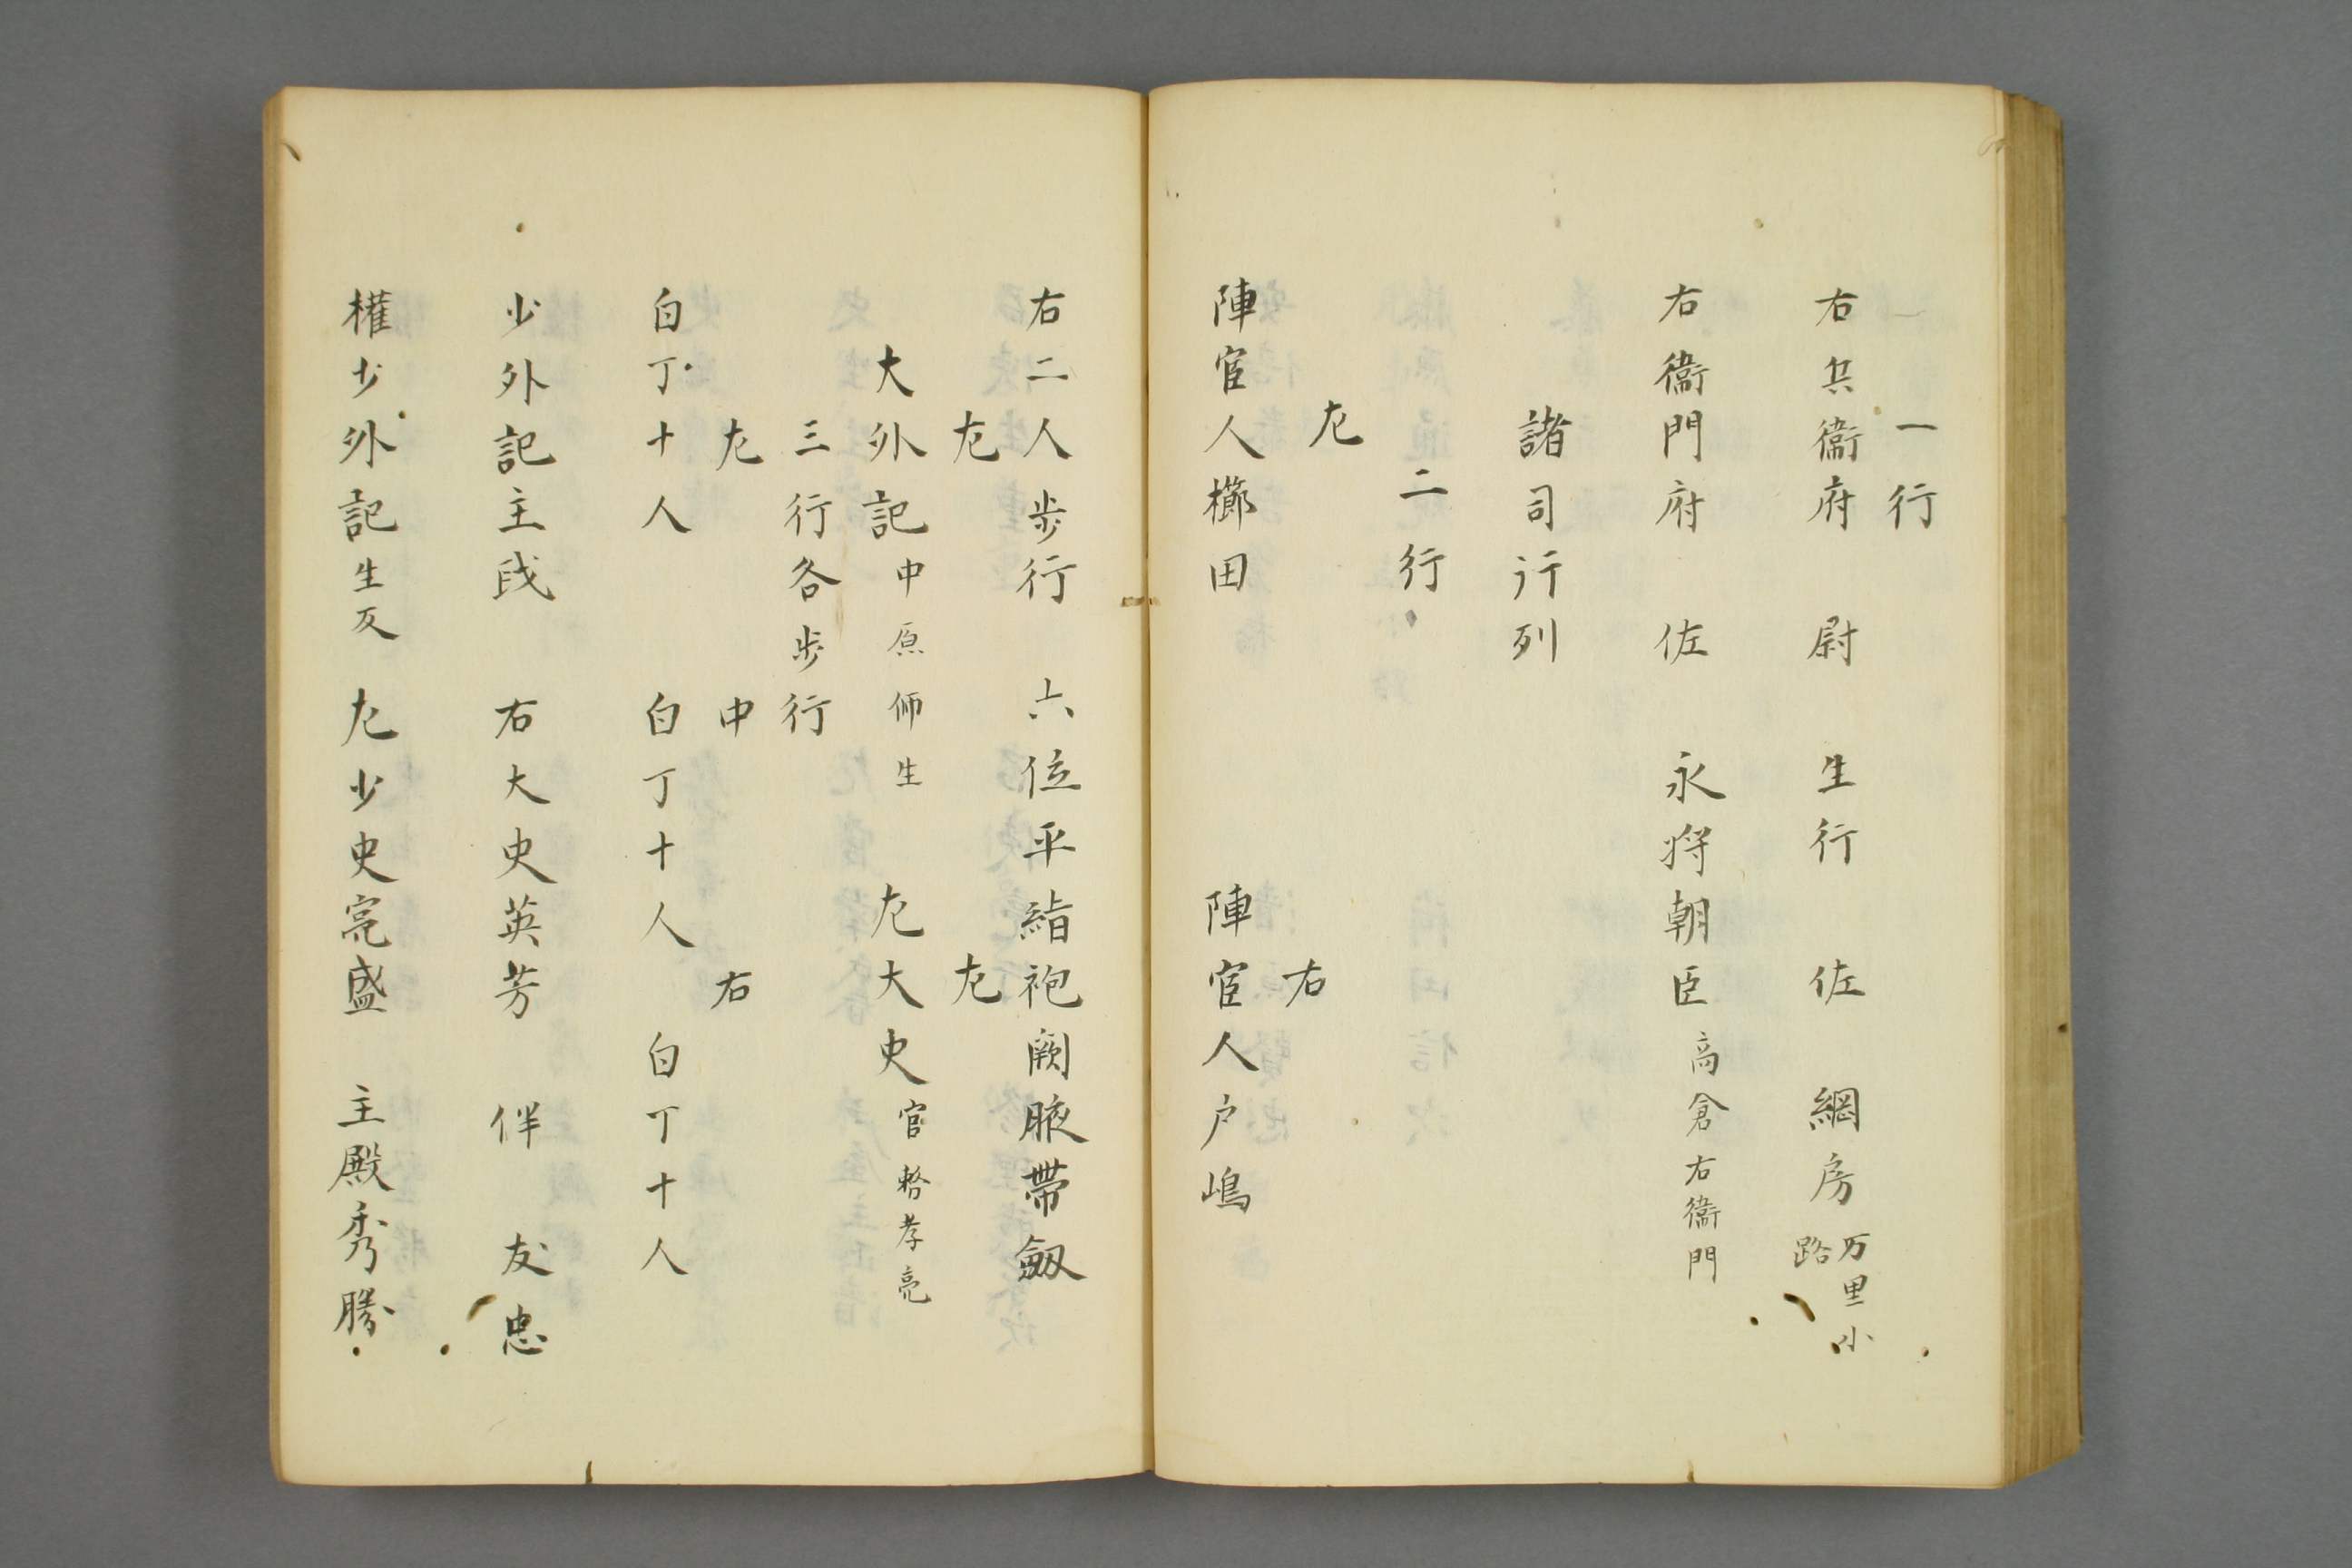 一行
右兵衞府　尉　生行　佐　綱房 万里小路
右衞門府　佐　永将朝臣 高倉右衞門
諸司行列
二行
左
右
陣官人櫛田　陣官人戸嶋
右二人歩行　六位平絹袍闕腋帯劔
左　左
大外記 中原師生　左大史 官務孝亮
三行各歩行
左　中　右
白丁十人　白丁十人　白丁十人
少外記主
右大史英芳　伴　友忠
權少外記 生　左少史亮盛　主殿秀勝